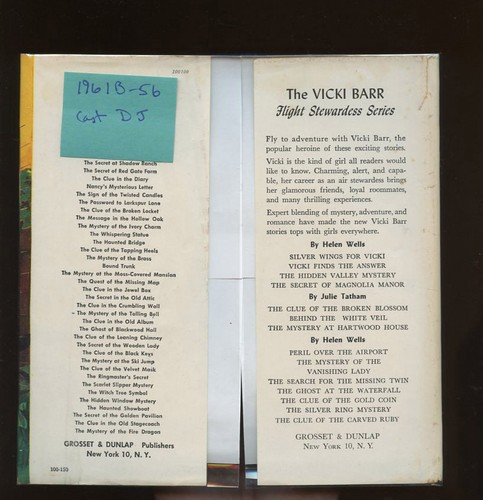 100-150
1961B-56
Cast DJ
The Secret at Shadow Ranch
The Secret of Red Gate Farm
The Clue in the Diary
Nancy's Mysterious Letter
The Sign of the Twisted Candles
The Password to Larkspur Lane
The Clue of the Broken Locket
The Message in the Hollow Oak
The Mystery of the Ivory Charm
The Whispering Statue
The Haunted Bridge
The Clue of the Tapping Heels
The Mystery of the Brass
Bound Trunk
The Mystery at the Moss-Covered Mansion
The Quest of the Missing Map
The Clue in the Jewel Box
The Secret in the Old Attic
The Clue in the Crumbling Wall
The Mystery of the Tolling Bell
The Clue in the Old Album
The Ghost of Blackwood Hall
The Clue of the Leaning Chimney
The Secret of the Wooden Lady
The Clue of the Black Keys
The Mystery at the Ski Jump
The Clue of the Velvet Mask
The Ringmaster's Secret
The Scarlet Slipper Mystery
The Witch Tree Symbol
The Hidden Window Mystery
The Haunted Showboat
The Secret of the Golden Pavilion
The Clue in the Old Stagecoach
The Mystery of the Fire Dragon
GROSSET & DUNLAP Publishers
New York 10, N. Y.
100-150
The VICKI BARR
Flight Stewardess Series
Fly to adventure with Vicki Barr, the
popular heroine of these exciting stories.
Vicki is the kind of girl all readers would
like to know. Charming, alert, and capa-
ble, her career as an air stewardess brings
her glamorous friends, loyal roommates,
and many thrilling experiences.
Expert blending of mystery, adventure, and
romance have made the new Vicki Barr
stories tops with girls everywhere.
By Helen Wells
SILVER WINGS FOR VICKI
VICKI FINDS THE ANSWER
THE HIDDEN VALLEY MYSTERY
THE SECRET OF MAGNOLIA MANOR
By Julie Tatham
THE CLUE OF THE BROKEN BLOSSOM
BEHIND THE WHITE VEIL
THE MYSTERY AT HARTWOOD HOUSE
By Helen Wells
PERIL OVER THE AIRPORT
THE MYSTERY OF THE
VANISHING LADY
THE SEARCH FOR THE MISSING TWIN
THE GHOST AT THE WATERFALL
THE CLUE OF THE GOLD COIN
THE SILVER RING MYSTERY
THE CLUE OF THE CARVED RUBY
GROSSET & DUNLAP
NEW YORK 10, N. Y.